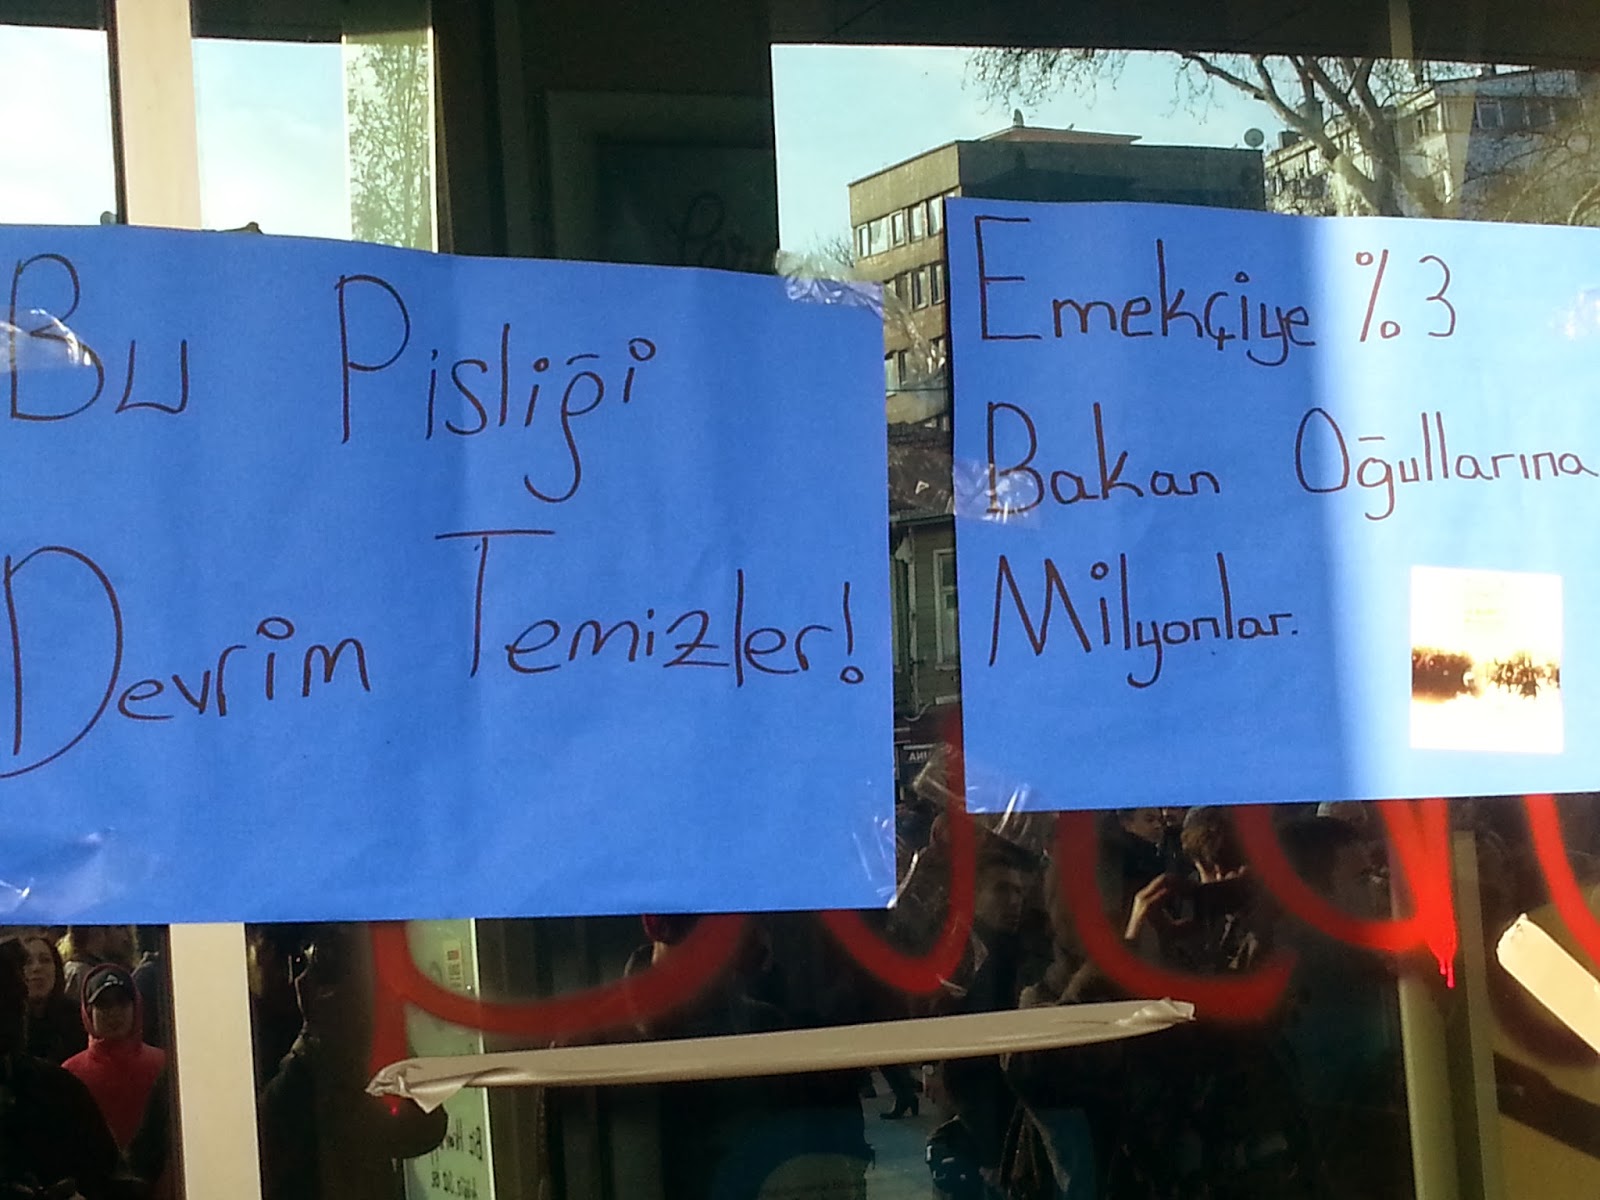 Bu Pisliği
Devrim Temizler!
Emekçiye %3
Bakan Oğullarına
Milyonlar.